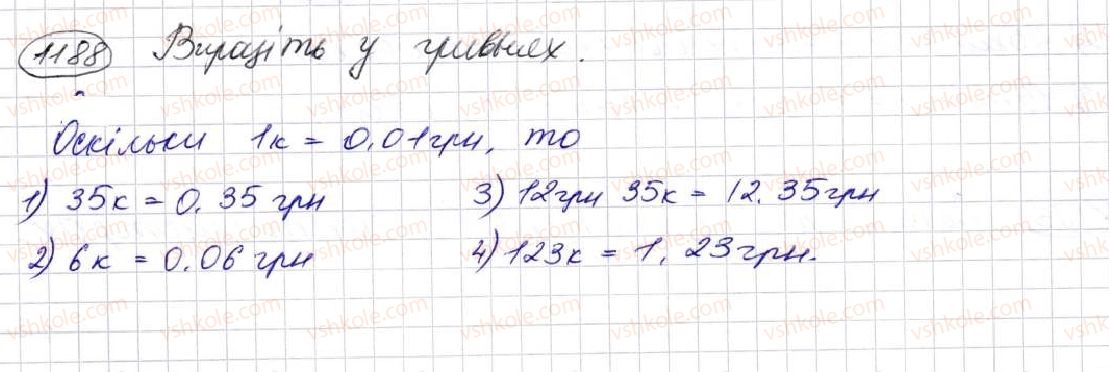 1188 Виразіть у гривнях.
Оскільки 1к = 0,01грн, то
1) 35к = 0,35 грн
2) 6к = 0,06 грн
3) 12грн 35к = 12,35грн
4) 123к = 1,23грн.